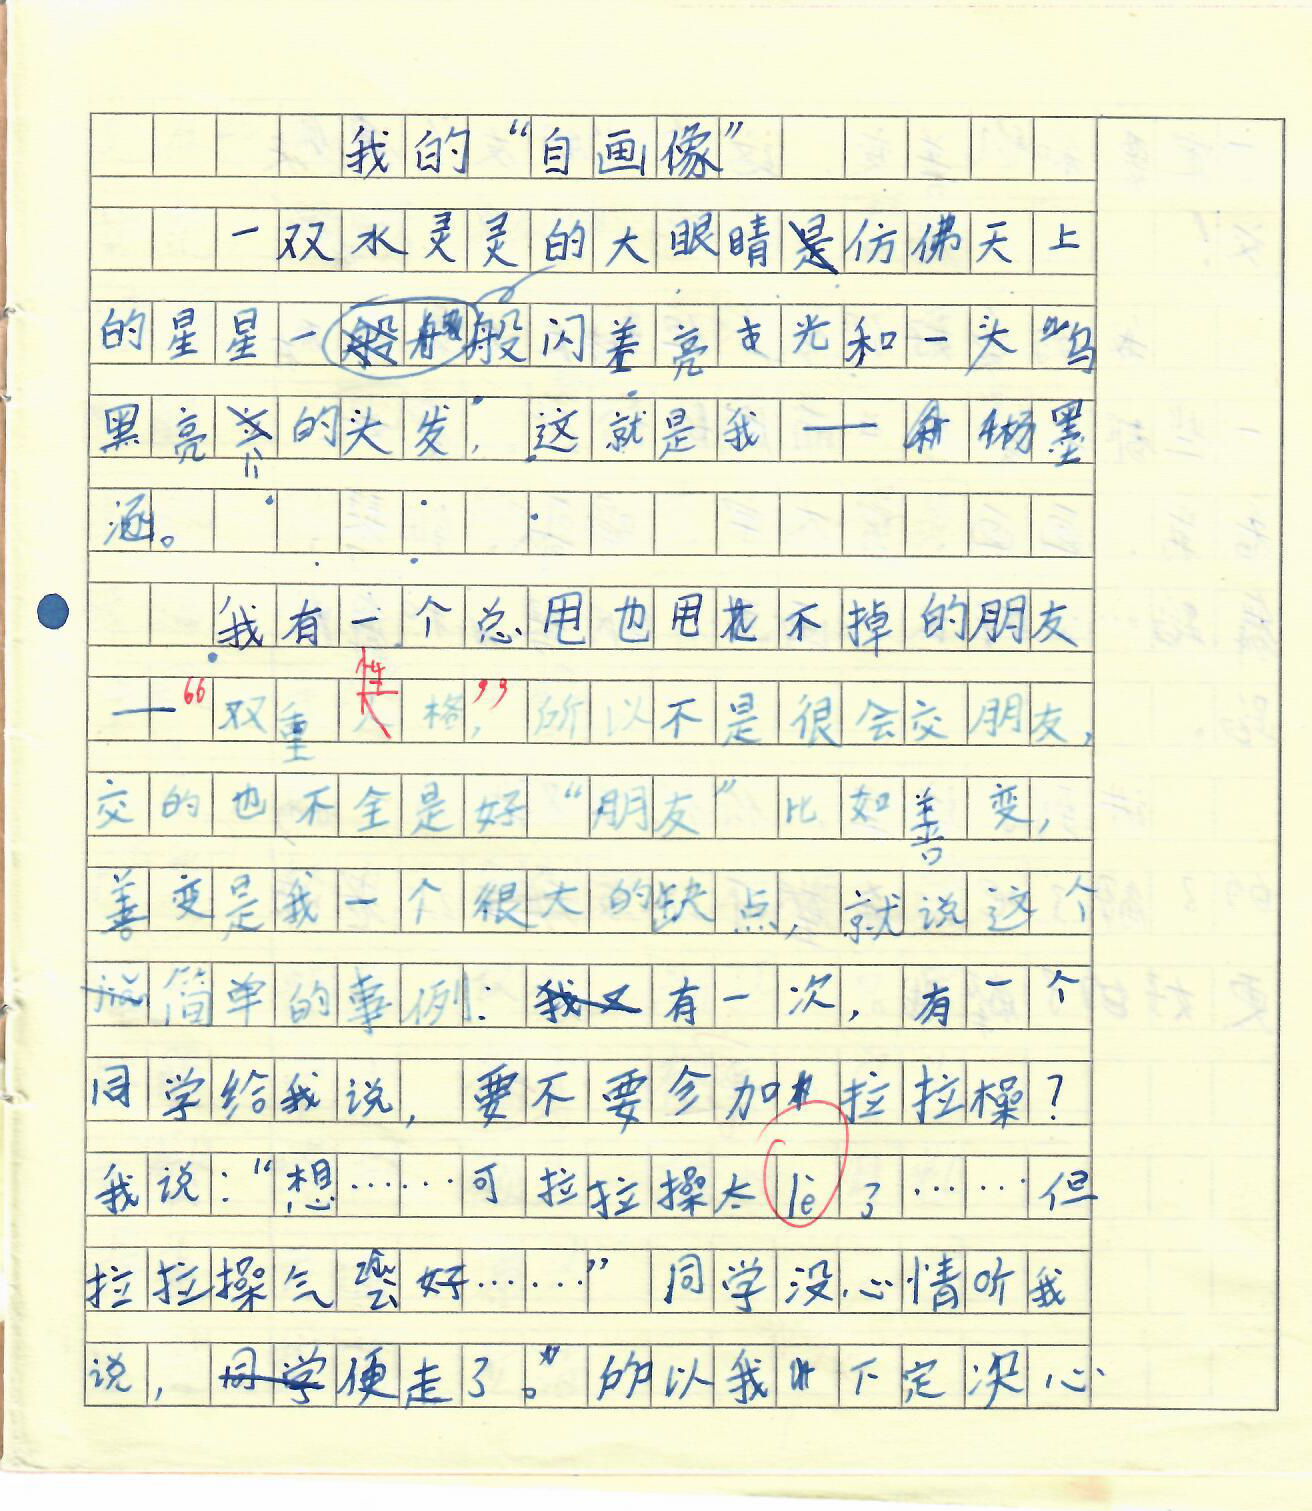 我的“自画像”
一双水灵灵的大眼睛仿佛天上
的星星一般闪着亮光和一头“乌
黑亮的头发，这就是我——墨
涵。
我有一个总甩也甩不掉的朋友
——“双重性格，”所以不是很会交朋友，
交的也不全是好“朋友”比如善变，
善变是我一个很大的缺点，就说这个
简单的事例：有一次，有一个
同学给我说，要不要参加拉拉操？
我说：“想……可拉拉操太lèi了……但
拉拉操气氛好……”同学没心情听我
说，便走了。”所以我下定决心